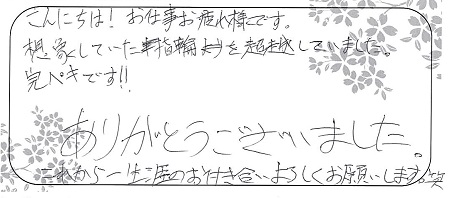 こんにちは！お仕事お疲れ様です。
想像していた指輪よりを超越していました。
完ペキです!!
ありがとうございました。
これから一生涯のお付き合いよろしくお願いします。笑